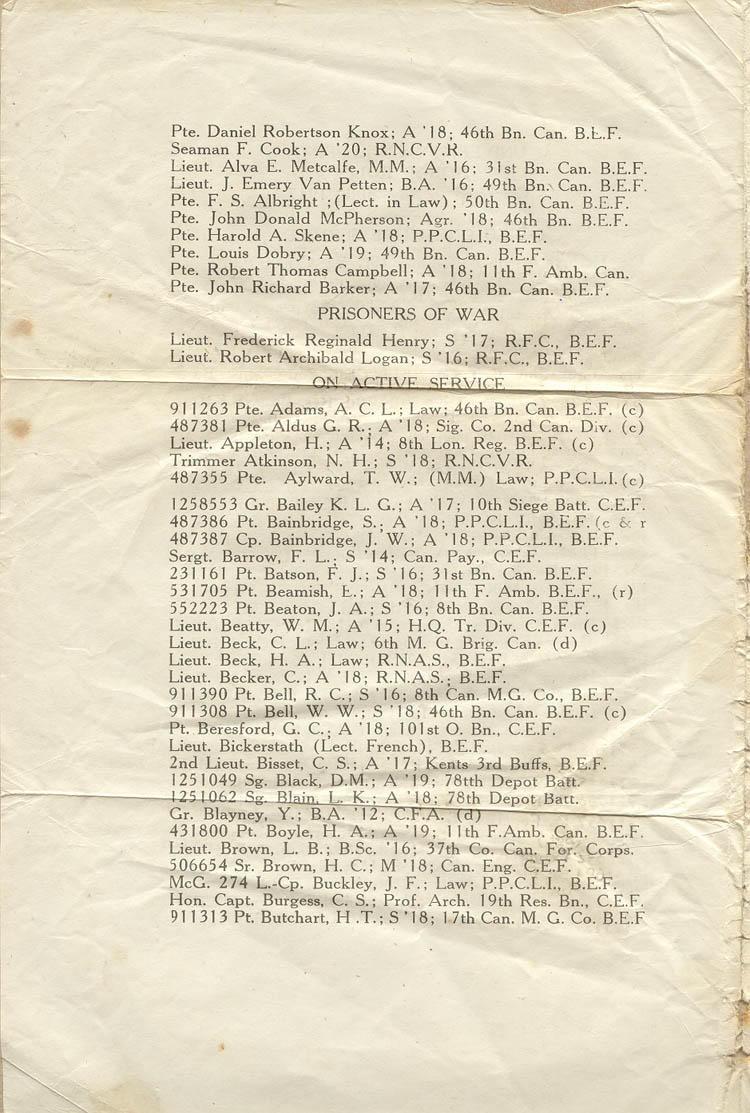 Pte. Daniel Robertson Knox; A '18; 46th Bn. Can. B.E.F.
Seaman F. Cook; A '20; R.N.C.V.R.
Lieut. Alva E. Metcalfe, M.M.; A '16; 31st Bn. Can. B.E.F.
Lieut. J. Emery Van Petten; B.A. '16; 49th Bn. Can. B.E.F.
Pte. F. S. Albright ;(Lect. in Law); 50th Bn. Can. B.E.F.
Pte. John Donald McPherson; Agr. '18; 46th Bn. B.E.F.
Pte. Harold A. Skene; A '18; P.P.C.L.I., B.E.F.
Pte. Louis Dobry; A '19; 49th Bn. Can. B.E.F.
Pte. Robert Thomas Campbell; A '18; 11th F. Amb. Can.
Pte. John Richard Barker; A '17; 46th Bn. Can. B.E.F.
PRISONERS OF WAR
Lieut. Frederick Reginald Henry; S '17; R.F.C., B.E.F.
Lieut. Robert Archibald Logan; S '16; R.F.C., B.E.F.
ON ACTIVE SERVICE
911263 Pte. Adams, A. C. L.; Law; 46th Bn. Can. B.E.F. (c)
487381 Pte. Aldus G. R.; A '18; Sig. Co. 2nd Can. Div. (c)
Lieut. Appleton, H.; A '14; 8th Lon. Reg. B.E.F. (c)
Trimmer Atkinson, N. H.; S '18; R.N.C.V.R.
487355 Pte. Aylward, T. W.; (M.M.) Law; P.P.C.L.I. (c)
1258553 Gr. Bailey K. L. G.; A '17; 10th Siege Batt. C.E.F.
487386 Pt. Bainbridge, S.; A '18; P.P.C.L.I., B.E.F. (c & r
487387 Cp. Bainbridge, J. W.; A '18; P.P.C.L.I., B.E.F.
Sergt. Barrow, F. L.; S '14; Can. Pay., C.E.F.
231161 Pt. Batson, F. J.; S '16; 31st Bn. Can. B.E.F.
531705 Pt. Beamish, E.; A '18; 11th F. Amb. B.E.F., (r)
552223 Pt. Beaton, J. A.; S '16; 8th Bn. Can. B.E.F.
Lieut. Beatty, W. M.; A '15; H.Q. Tr. Div. C.E.F. (c)
Lieut. Beck, C. L.; Law; 6th M. G. Brig. Can. (d)
Lieut. Beck, H. A.; Law; R.N.A.S., B.E.F.
Lieut. Becker, C.; A '18; R.N.A.S.; B.E.F.
911390 Pt. Bell, R. C.; S '16; 8th Can. M.G. Co., B.E.F.
911308 Pt. Bell, W. W.; S '18; 46th Bn. Can. B.E.F. (c)
Pt. Beresford, G. C.; A '18; 101st O. Bn., C.E.F.
Lieut. Bickerstath (Lect. French), B.E.F.
2nd Lieut. Bisset, C. S.; A '17; Kents 3rd Buffs, B.E.F.
1251049 Sg. Black, D.M.; A '19; 78tth Depot Batt.
1251062 Sg. Blain, L. K.; A '18; 78th Depot Batt.
Gr. Blayney, Y.; B.A. '12; C.F.A. (d)
431800 Pt. Boyle, H. A.; A '19; 11th F.Amb. Can. B.E.F.
Lieut. Brown, L. B.; B.Sc. '16; 37th Co. Can. For. Corps.
506654 Sr. Brown, H. C.; M '18; Can. Eng. C.E.F.
McG. 274 L.-Cp. Buckley, J. F.; Law; P.P.C.L.I., B.E.F.
Hon. Capt. Burgess, C. S.; Prof. Arch. 19th Res. Bn., C.E.F.
911313 Pt. Butchart, H .T.; S '18; 17th Can. M. G. Co. B.E.F